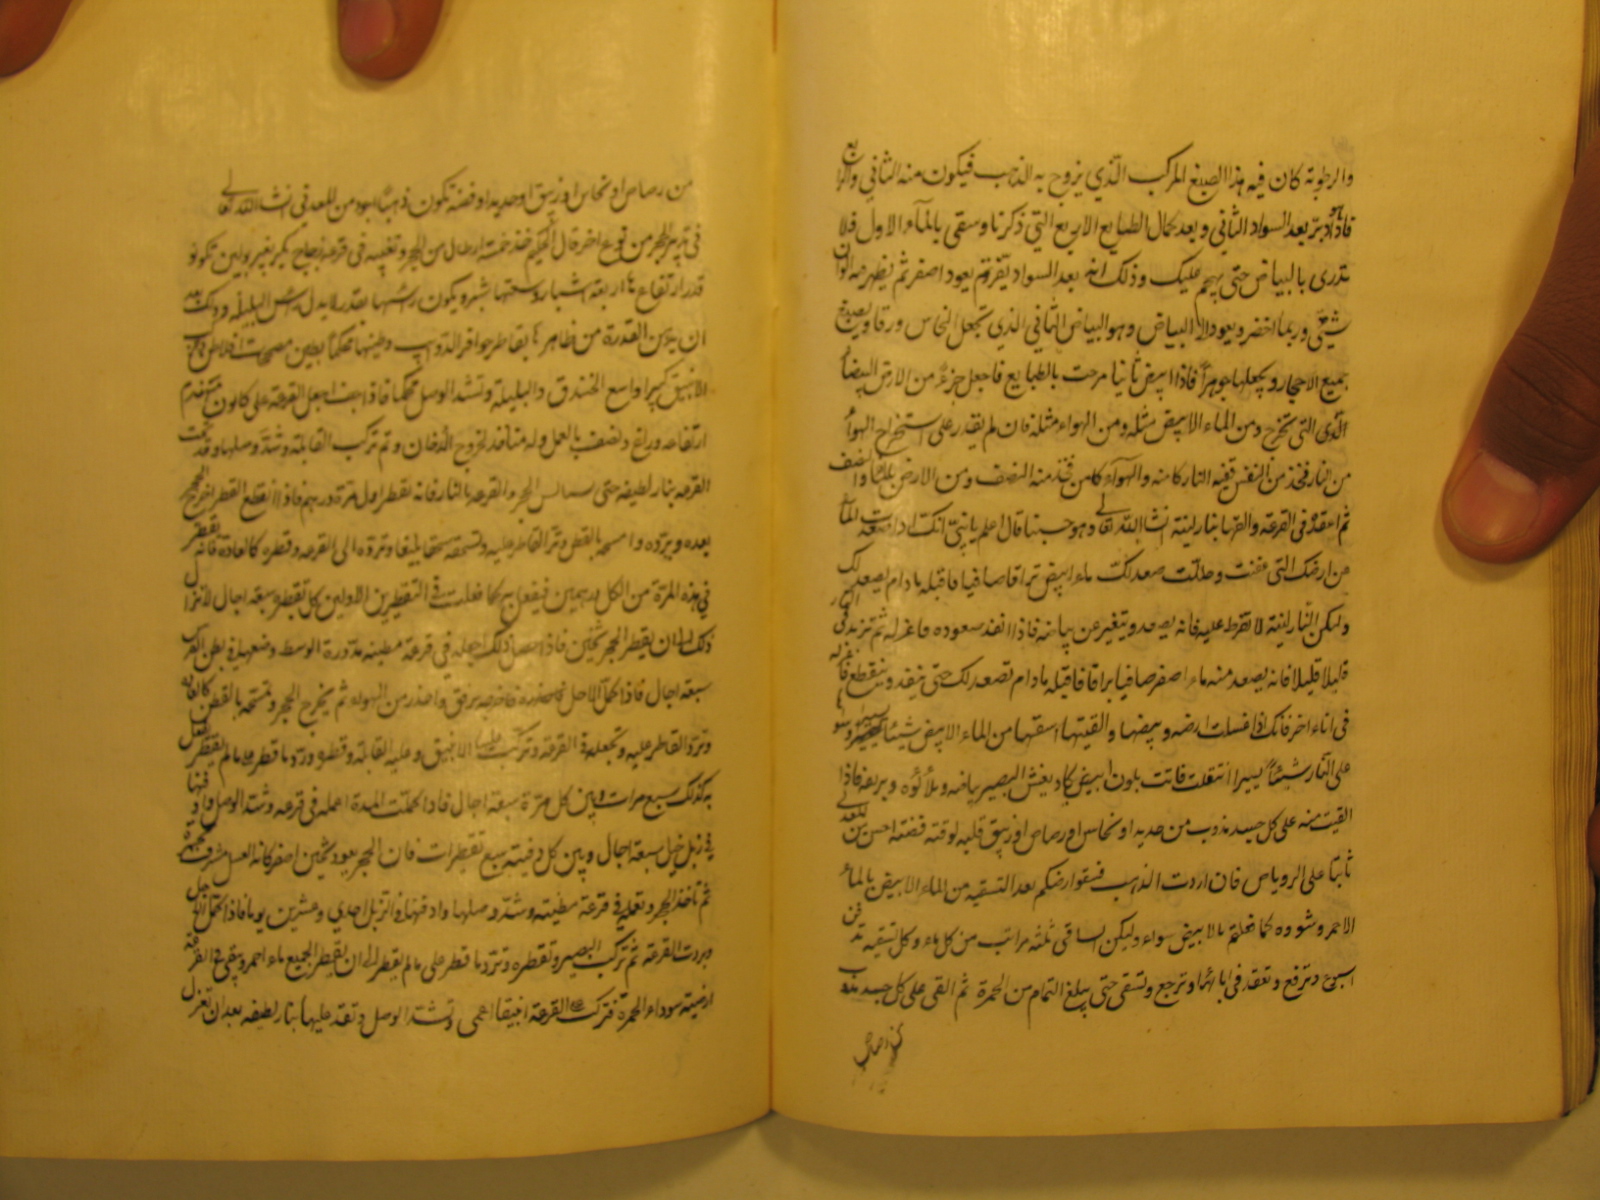 والرطوبة كان فيه هذا الصبغ المركب الذي يزوج به الذهب فيكون منه الثاني والرابع
فاذا دبر بعد السواد الثاني وبعد كمال الطبايع الاربع التي ذكرنا وسقى بالماء الاول فلا
تدرى بالبياض حتى يهجم عليك وذلك انه بعد السواد ثم يعود اصفر ثم يظهر
شتى وربما اخضر ويعود الى البياض وهو البياض الثاني الذي تجعل النحاس ورقا ويصبغ
جميع الاحجار ويجعلها جوهرا فاذا ابيض ثانيا مزجت بالطبايع فاجعل جزء من الارض البيضاء
التي تخرج ومن الماء الابيض مثله ومن الهواء مثله فان لم تقدر على استخراج الهواء
من النار فخذ من النفس ففيه النار كامنه والهواء كامن فخذ منه النصف ومن الارض والنصف
ثم اعقد في القرعة بنار لينة انشا الله تعالى وهو حسبنا قال اعلم يا بني انك اذا الماء
من ارضك التي عفنت وحللت صعد لك ماء ابيض براقا صافيا فاقبله ما دام يصعد لك
وليكن النار لينة لا تفرط عليه فانه يصعد ويتغير عن بياضه فاذا انفد صعوده فاعزله ثم تزيد في النار
قليلا قليلا فانه يصعد منه ماء اصفر صافيا براقا فاقبله ما دام تصعد لك حتى ينفد وينقطع فاعزله
في اناء اخر فانك اذا غسلت ارضه وبيضها والقيتها اسقها من الماء الابيض شيئا
على النار شيئا يسيرا انتقلت فاتت بلون ابيض يكاد يغش البصر بياضه وتلألؤه وبريقه فاذا
القيت منه على كل جسد مذوب من حديد او نحاس او رصاص او زيبق قلبه لوقته فضة احسن من المعدني
ثابتا على الروباص فان اردت الذهب فسقوا ارضكم بعد التسقيه من الماء الابيض بالماء
الاحمر وشووه كما فعلتم بالابيض سواء وليكن الساقى ثلثه مراتب من كل ماء وكل تسقيه تدفن
اسبوع وترفع وتعقد في وترجع وتسقى حتى يبلغ التمام من الحمرة ثم القى على كل جسد مذوب
من رصاص
من رصاص او نحاس او زيبق او حديد او فضة تكون ذهبا اجود من المعدني انشا الله تعالى
في تدبير الحجر من نوع اخر قال الحكيم خذ خمسة ارطال من الحجر وتغيبه في قرعة زجاج بكر بغير بولين تكون
قدر ارتفاعها اربعة اشبار وسعتها شبر ويكون راسها بقدر لا يدل راس البليلة وذلك بعد
ان القدرة من ظاهر حوافر الدواب وطينها محكما بطين
الانبيق كبيرا واسع الخندق والبليلة وتشد الوصل محكما فاذا جف اجعل القرعة على كانون مستقدم
ارتفاعه ذراع ونصف بالعمل وله منافذ لخروج الدخان وتم تركب القابلة وشد وصلها وقد تحت
القرعة بنار لطيفه حتى الحجر والقرعه بالنار فانه تقطر اول مرة درهم فاذا انقطع القطر اخرج الحجر
بعده وبرده واسحقه بالقطر وترد القاطر عليه وتسحقه سحقا بليغا وترده الى القرعه وقطره كالعادة فانه يقطر
في هذه المرة من الكل درهمين فيفعل به كما فعلت في التقطيرين الاولين كما تقطره سبعة اجال لا تزال
ذلك الى ان يقطر الحجر ثخين فاذا حصل ذلك اجعله في قرعة مطينه مدورة الوسط وضعها في
سبعة اجال فاذا كمل الاجل واحذر من الهواء ثم يخرج الحجر وتسحقه بالقطر كالعادة
وترد القاطر عليه وتجعله في القرعة وتركب عليها الانبيق وعليه القابلة وقطره ورد ما قطر على ما لم يقطر تفعل
به كذلك سبع مرات وبين كل مرة سبعة اجال فاذا كملت المدة اعمله في قرعه وشد الوصل وادفنها
في زبل خيل سبعة اجال وبين كل دفينه سبع تقطيرات فان الحجر يعود ثخين اصفر كانه العسل مشرف بحمرة
ثم تاخذ الحجر وتعمله في قرعة مطينه وشد وصلها وادفنها في الزبل احدي وعشرين يوما فاذا كمل الاجل
وبردت القرعة ثم تركب البصير وتقطره وترد ما قطر على ما لم يقطر الى ان يقطر الجميع ماء احمر ويبقى في القرعة
ارضيته سوداء الحمرة فتركب على القرعة انبيقا اعمى وتشد الوصل وتقد عليها بنار لطيفه بعد ان تعزل